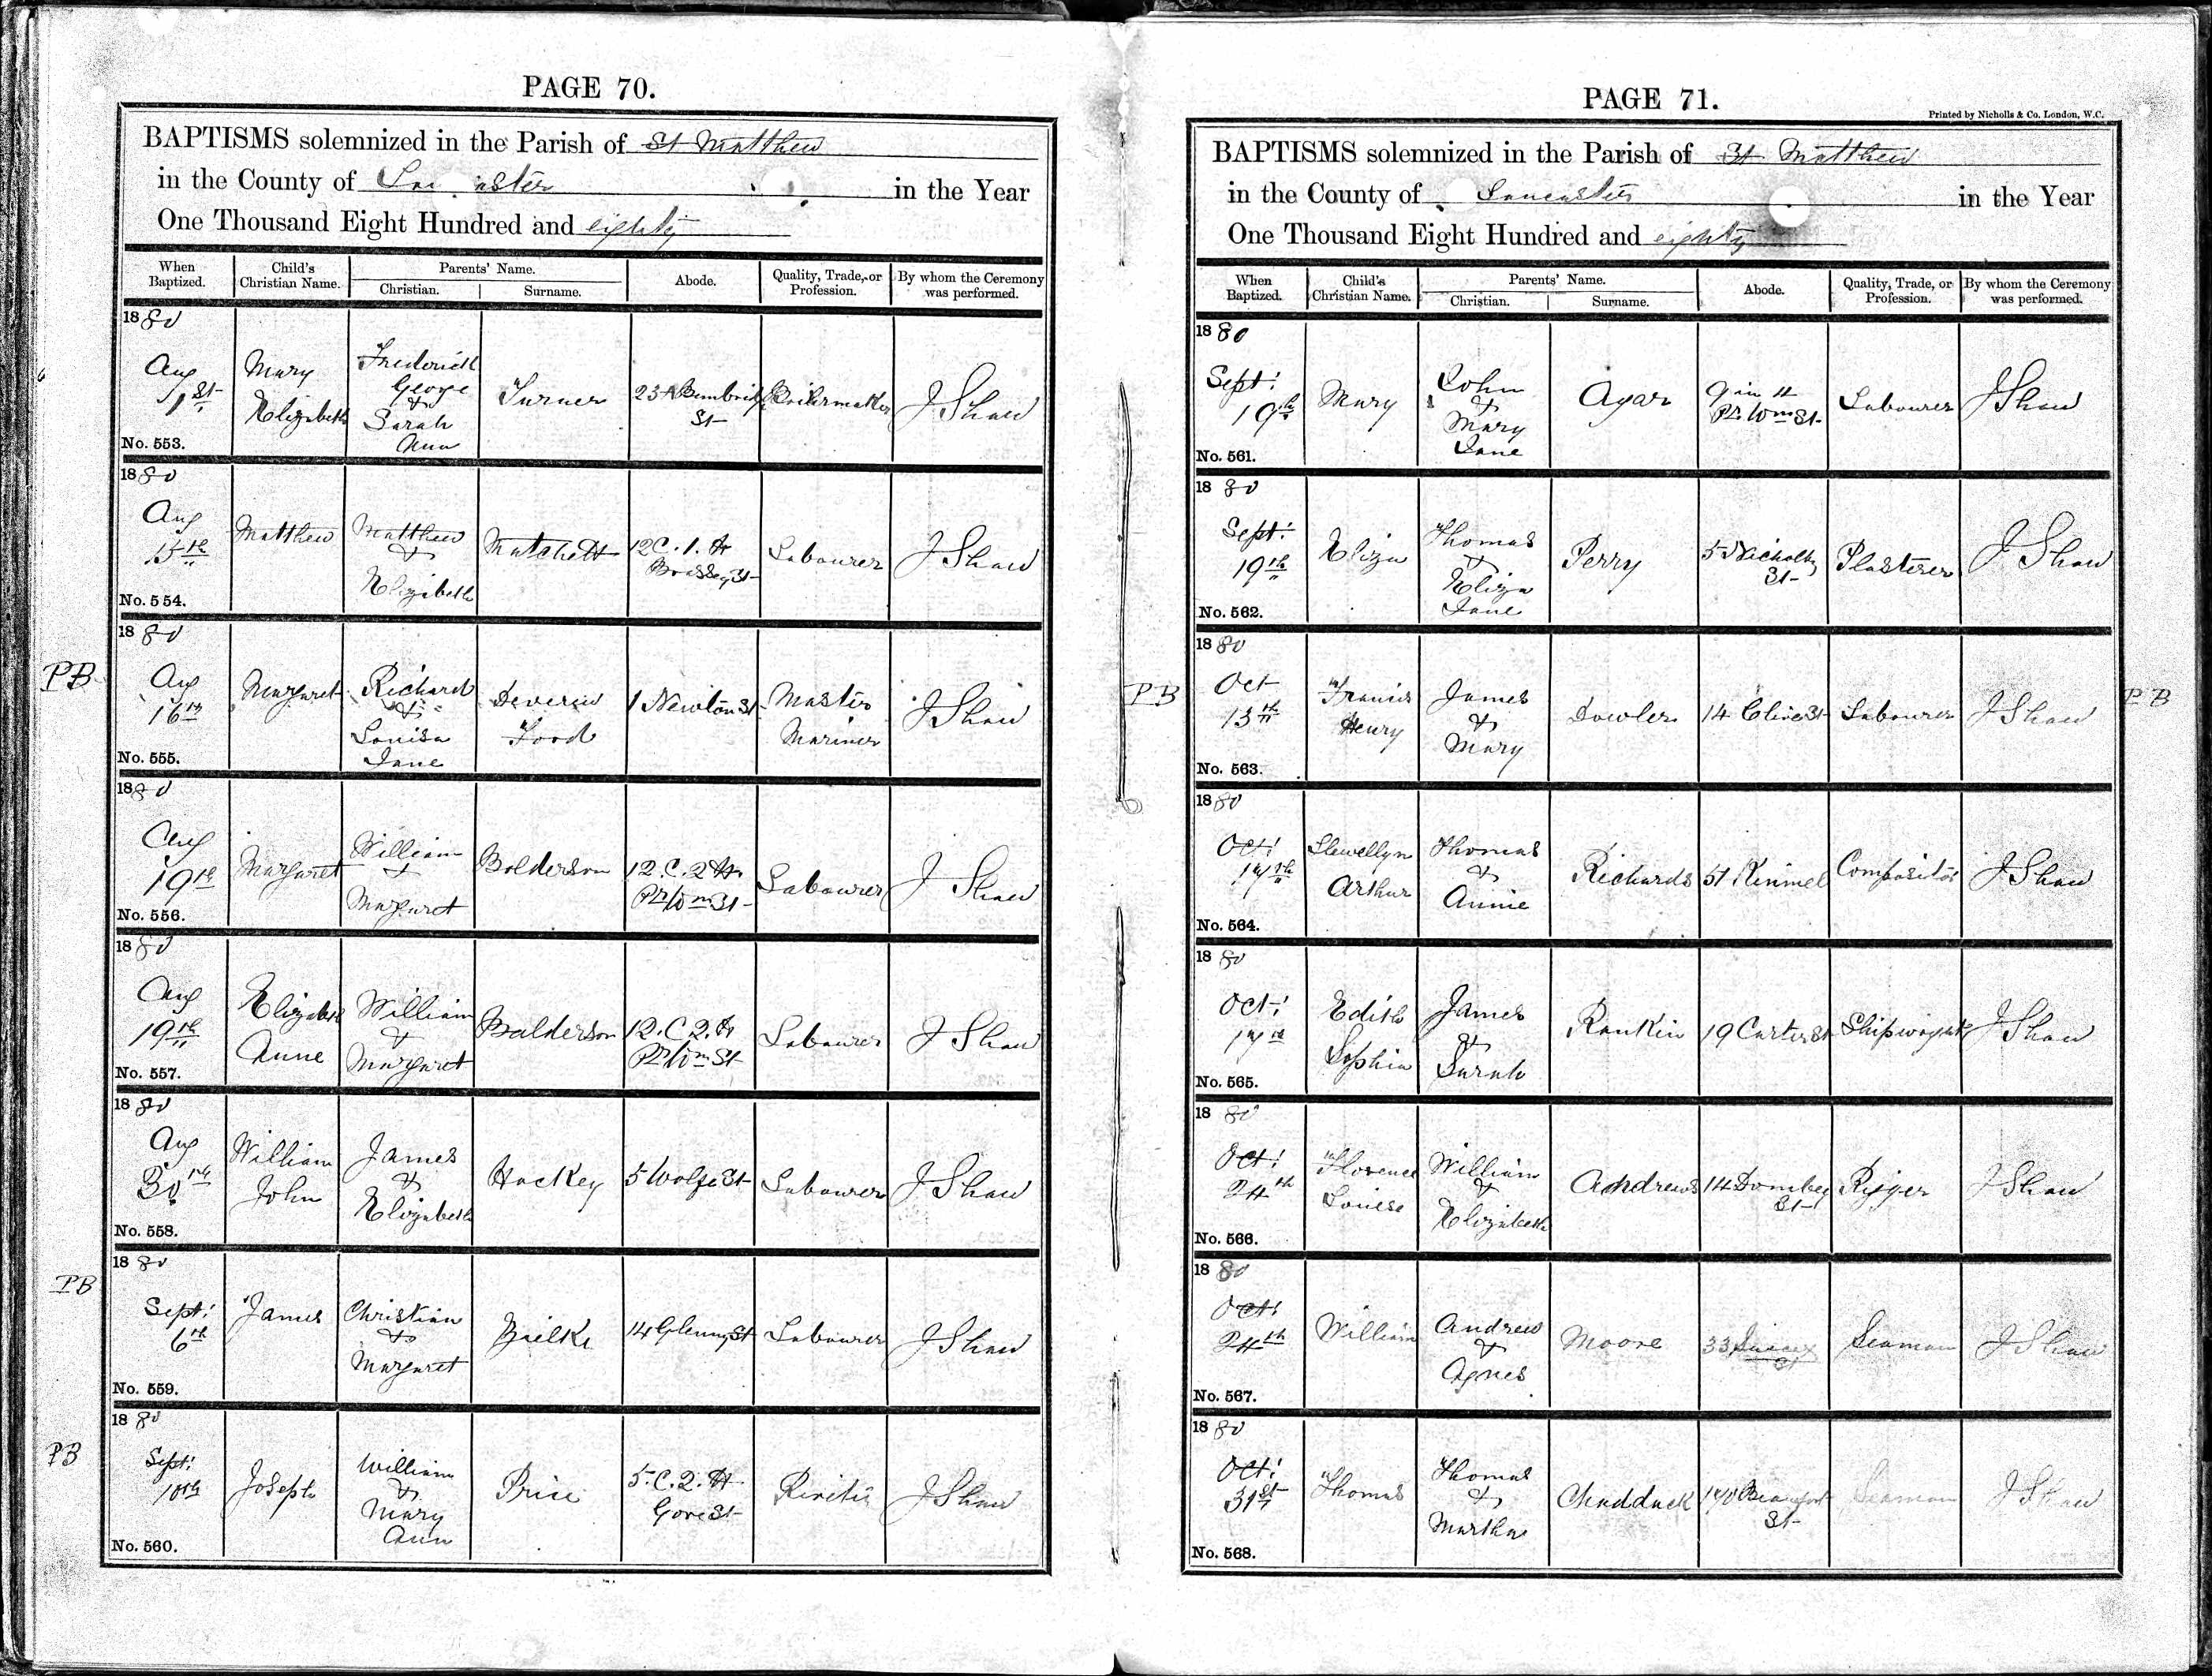 PAGE 70.
BAPTISMS solemnized in the Parish of St Matthew
in the County of Lancaster in the Year
One Thousand Eight Hundred and eighty
When Baptized.
Child's Christian Name.
Parents' Name.
Christian.
Surname.
Abode.
Quality, Trade, or Profession.
By whom the Ceremony was performed.
1880
Aug
1st
No. 553.
Mary
Elizabeth
Frederick
George
&
Sarah
Ann
Turner
23 Bembridge
St
Boilermaker
J Shaw
1880
Aug
15th
No. 554.
Matthew
Matthew
&
Elizabeth
Matchett
12 C. 1. H
Brassey St
Labourer
J Shaw
PB
1880
Aug
16th
No. 555.
Margaret
Richard
&
Louisa
Jane
Devereu
Foord
1 Newton St
Master
Mariner
J Shaw
1880
Aug
19th
No. 556.
Margaret
William
&
Margaret
Balderson
12. C. 2 H
Pr Wm St
Labourer
J Shaw
1880
Aug
19th
No. 557.
Elizabeth
Anne
William
&
Margaret
Balderson
12. C. 2. H
Pr Wm St
Labourer
J Shaw
1880
Aug
30th
No. 558.
William
John
James
&
Elizabeth
Hockey
5 Wolfe St
Labourer
J Shaw
PB
1880
Sept:
6th
No. 559.
James
Christian
&
Margaret
Zielke
14 Glenny St
Labourer
J Shaw
PB
1880
Sept:
10th
No. 560.
Joseph
William
&
Mary
Ann
Price
5. C. 2. H
Gore St
Riveter
J Shaw
PAGE 71.
Printed by Nicholls & Co. London, W.C.
BAPTISMS solemnized in the Parish of St Matthew
in the County of Lancaster in the Year
One Thousand Eight Hundred and eighty
When Baptized.
Child's Christian Name.
Parents' Name.
Christian.
Surname.
Abode.
Quality, Trade, or Profession.
By whom the Ceremony was performed.
1880
Sept:
19th
No. 561.
Mary
John
&
Mary
Jane
Agar
9 in 11
Pr Wm St
Labourer
J Shaw
1880
Sept:
19th
No. 562.
Eliza
Thomas
&
Eliza
Jane
Perry
5 Nicholas
St
Plasterer
J Shaw
PB
1880
Oct
13th
No. 563.
Francis
Henry
James
&
Mary
Dowler
14 Clive St
Labourer
J Shaw
PB
1880
Oct:
17th
No. 564.
Llewellyn
Arthur
Thomas
&
Annie
Richards
51 Kinmel
Compositor
J Shaw
1880
Oct:
17th
No. 565.
Edith
Sophia
James
&
Sarah
Rankin
19 Carter St
Shipwright
J Shaw
1880
Oct:
24th
No. 566.
Florence
Louise
William
&
Elizabeth
Andrews
14 Dombey
St
Rigger
J Shaw
1880
Oct:
24th
No. 567.
William
Andrew
&
Agnes
Moore
33 Sussex
St
Seaman
J Shaw
1880
Oct:
31st
No. 568.
Thomas
Thomas
&
Martha
Chadduck
170 Beaufort
St
Seaman
J Shaw